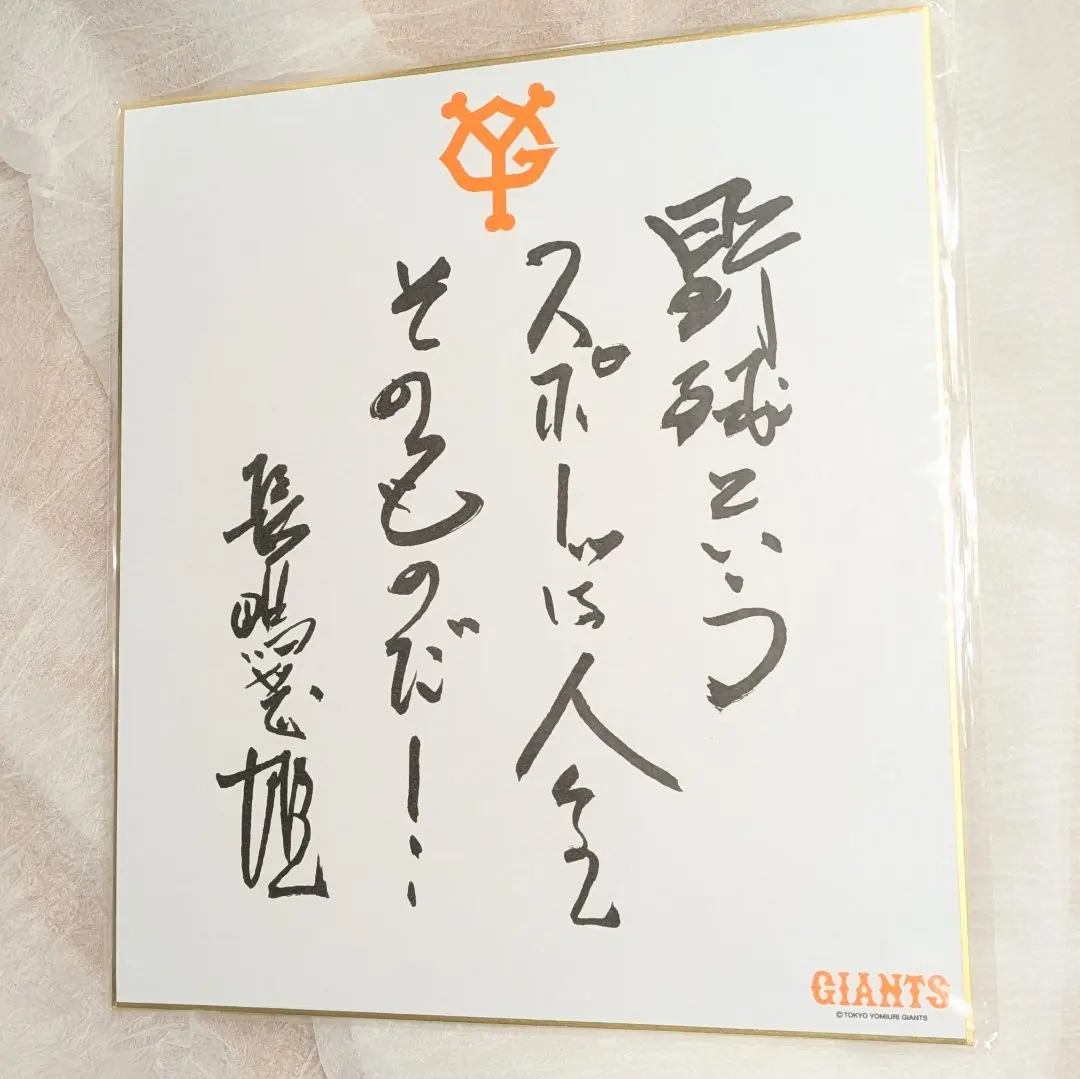 野球という
スポーツは人生
そのものだ!!
長嶋茂雄
GIANTS
©TOKYO YOMIURI GIANTS